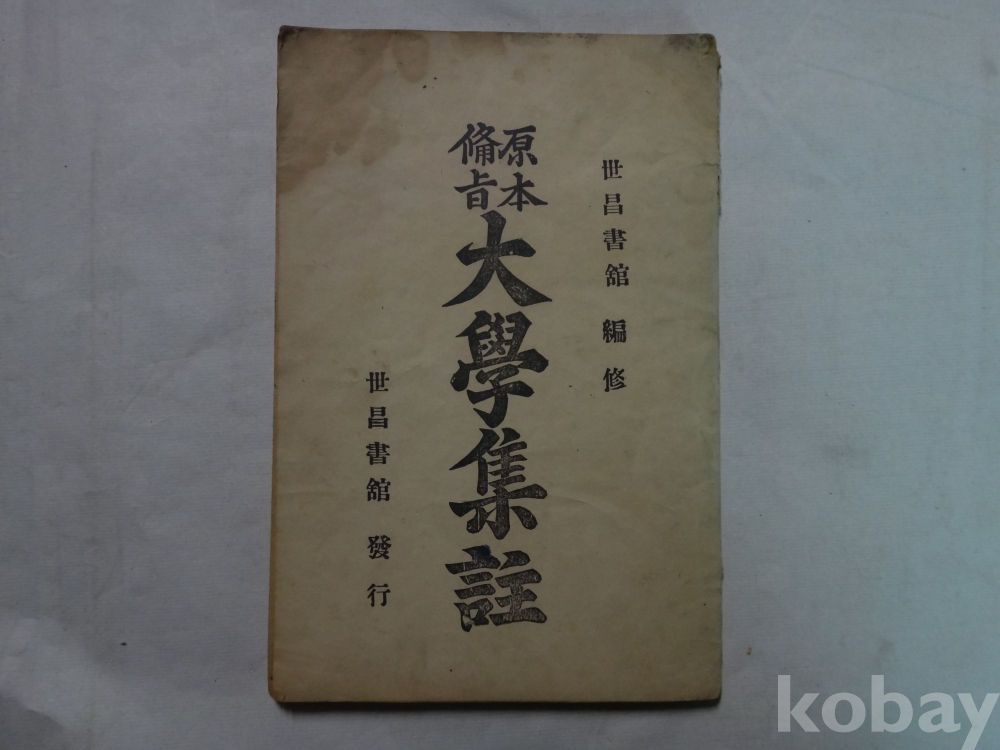 世昌書舘 編修
原本
備旨
大學集註
世昌書舘 發行
kobay